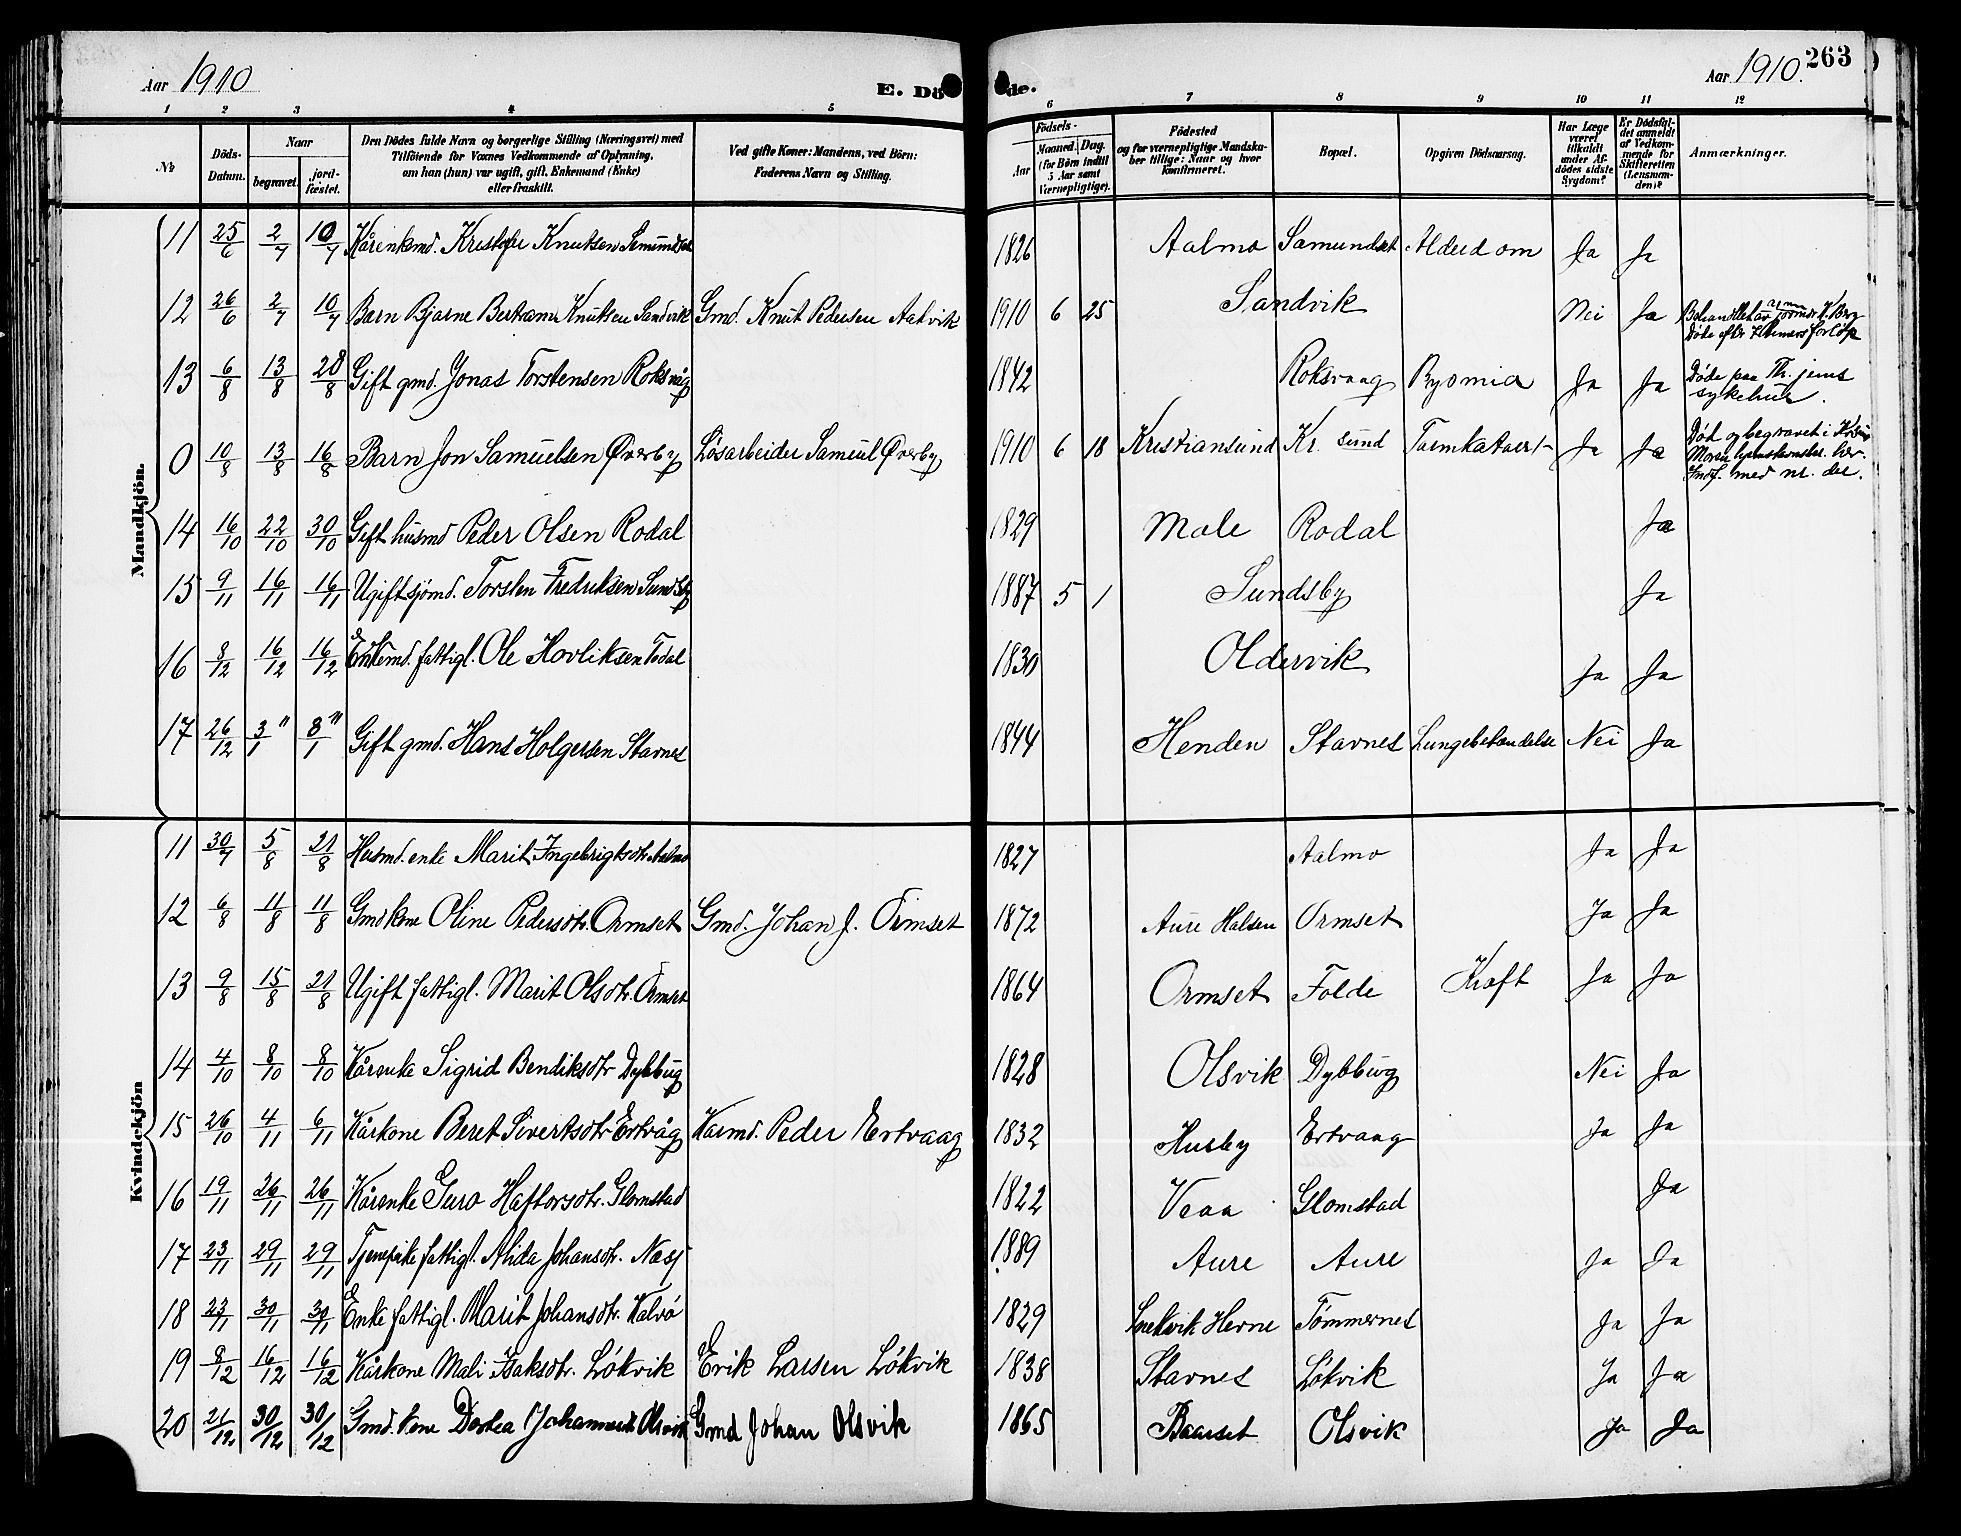 Aar 1910
E. Dö de.
Aar 1910. 263
1 2 3 4 5 6 7 8 9 10 11 12
№
Döds-Datum.
Naar
begravet.
jord-fæstet.
Den Dödes fulde Navn og borgerlige Stilling (Næringsvei) med Tilföiende for Voxnes Vedkommende af Oplysning, om han (hun) var ugift, gift, Enkemand (Enke) eller fraskilt.
Ved gifte Koner: Mandens, ved Börn: Faderens Navn og Stilling.
Födsels-
Aar
Maaned. Dag.
(for Börn indtil 5 Aar samt Værnepligtige).
Födested og for værnepligtige Mandskaber tillige: Naar og hvor konfirmeret.
Bopæl.
Opgiven Dödsaarsag.
Har Læge været tilkaldt under Afdödes sidste Sygdom?
Er Dödsfaldet anmeldt af Vedkommende for Skifteretten (Lensmanden)?
Anmærkninger.
Mandkjön.
11 25/6 2/7 10/7 Kårenkemd. Kristofer Knutsen 1826 Aalmo Samundset Alderdom Ja Ja
12 26/6 2/7 10/7 Barn Bjarne Knutsen Sandvik Gmd. Knut Pedersen 1910 6 25 Sandvik Nei Ja Behandlet av jormor K. Berg
13 6/8 13/8 28/8 Gift gmd. Jonas Torstensen Roksvåg 1842 Roksvaag Ja Ja Döde paa Th.jems sykehus.
0 10/8 13/8 16/8 Barn Jon Samuelsen Øverby Løsarbeider Samuel Øverby 1910 6 18 Kristiansund Kr. sund Ja Ja Død og begravet i med nr. der.
14 16/10 22/10 30/10 Gift husmd Peder Olsen Rodal 1829 Mole Rodal Ja
15 9/11 16/11 16/11 Ugift sjömd. Torsten Fredriksen Sundsby 1887 5 1 Sundsby Ja
16 8/12 16/12 16/12 Enkemd. fattigl. Ole Todal 1830 Oldervik Ja Ja
17 26/12 3/1 " 8/1 "' Gift gmd. Hans Holgersen Stavnes 1844 Henden Stavnes Nei Ja
Kvindekjön
11 30/7 5/8 21/8 Husmd. enke Marit Ingebrigtsdtr. Aalmo 1827 Aalmo Ja Ja
12 6/8 11/8 11/8 Gmd kone Oline Pedersdtr. Ormset Gmd. Johan J. Ormset 1872 Aure Halsen Ormset Ja Ja
13 9/8 15/8 21/8 Ugift fattigl. Marit Olsdtr. Ormset 1864 Ormset Folde Kræft Ja Ja
14 4/10 8/10 8/10 Kårenke Sigrid Bendiksdtr Dybbug 1828 Olsvik Dybbug Nei Ja
15 26/10 4/11 6/11 Kårkone Beret Sivertsdtr Ertvåg Karmd. Peder Ertvaag 1832 Husby Ertvaag Ja Ja
16 19/11 26/11 26/11 Kårenke Guro Haftorsdtr. Glomstad 1822 Veaa Glomstad Ja
17 23/11 29/11 29/11 Tjenepike fattigl. Alida Johansdtr. 1889 Aure Aure Ja Ja
18 23/11 30/11 30/11 Enke fattigl. Marit Johansdtr. Kalvö 1829 Snekvik Herne Tömmernes Ja Ja
19 8/12 16/12 16/12 Kårkone Mali Isaksdtr. Lökvik Erik Larsen Lökvik 1838 Stavnes Lökvik Ja Ja
20 21/12 30/12 30/12 Gmd. kone Dortea Olsvik Gmd Johan Olsvik 1865 Baarset Olsvik Ja Ja